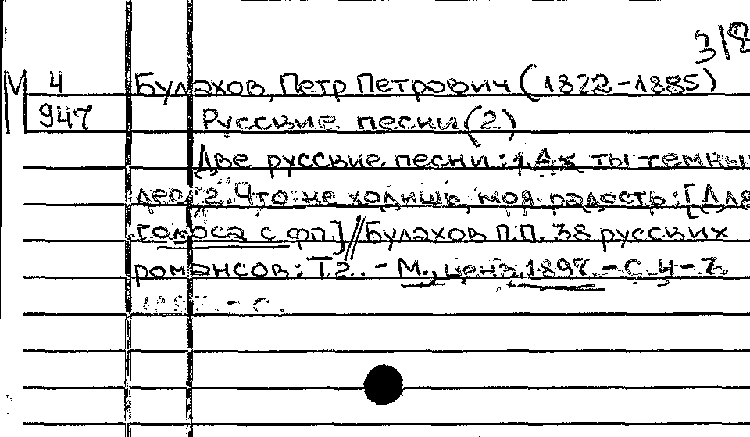 318
М 4 Булахов, Петр Петрович (1822-1885)
947 Русские песни (2)
Две русские песни: 1. Ах ты темный
лес; 2. Что не ходишь, моя радость: [Для
голоса с фп.] // Булахов П.П. 38 русских
романсов: Т.2. - М., ценз. 1897. - С. 4-7.